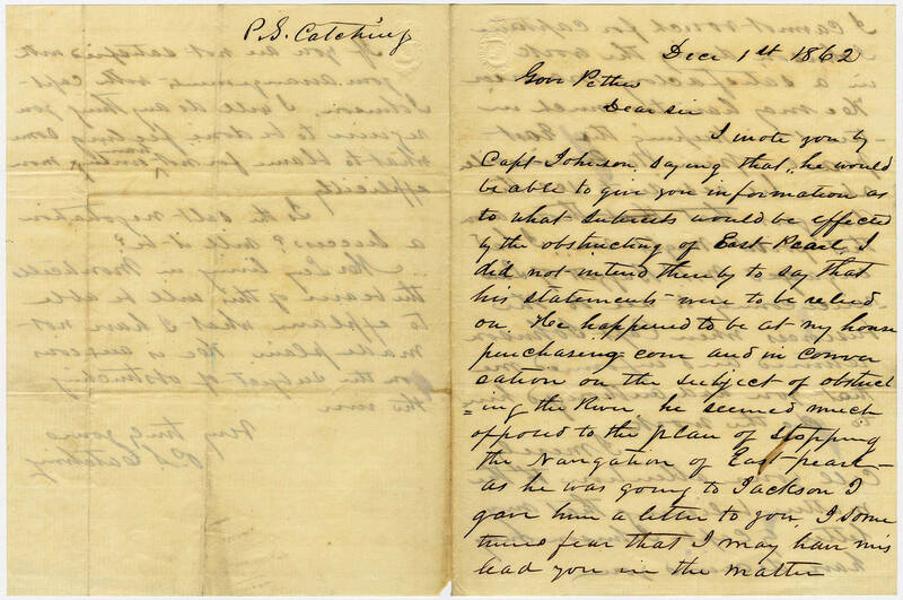 P. S. Catching
Decr 1st 1862
Gov Pettus
Dear sir
I wrote you by
Capt Johnson, saying that, he would
be able to give you information as
to what interests would be effected
by the obstructing of East Pearl, I
did not intend thereby to say that
his statements were to be relied
on. He happened to be at my house
purchasing corn and in conver
sation on the subject of obstruct
=ing the River, he seemed much
opposed to the plan of stopping
the Navigation of East pearl –
as he was going to Jackson I
gave him a letter to you, I some
times fear that I may have mis
lead you in the matter